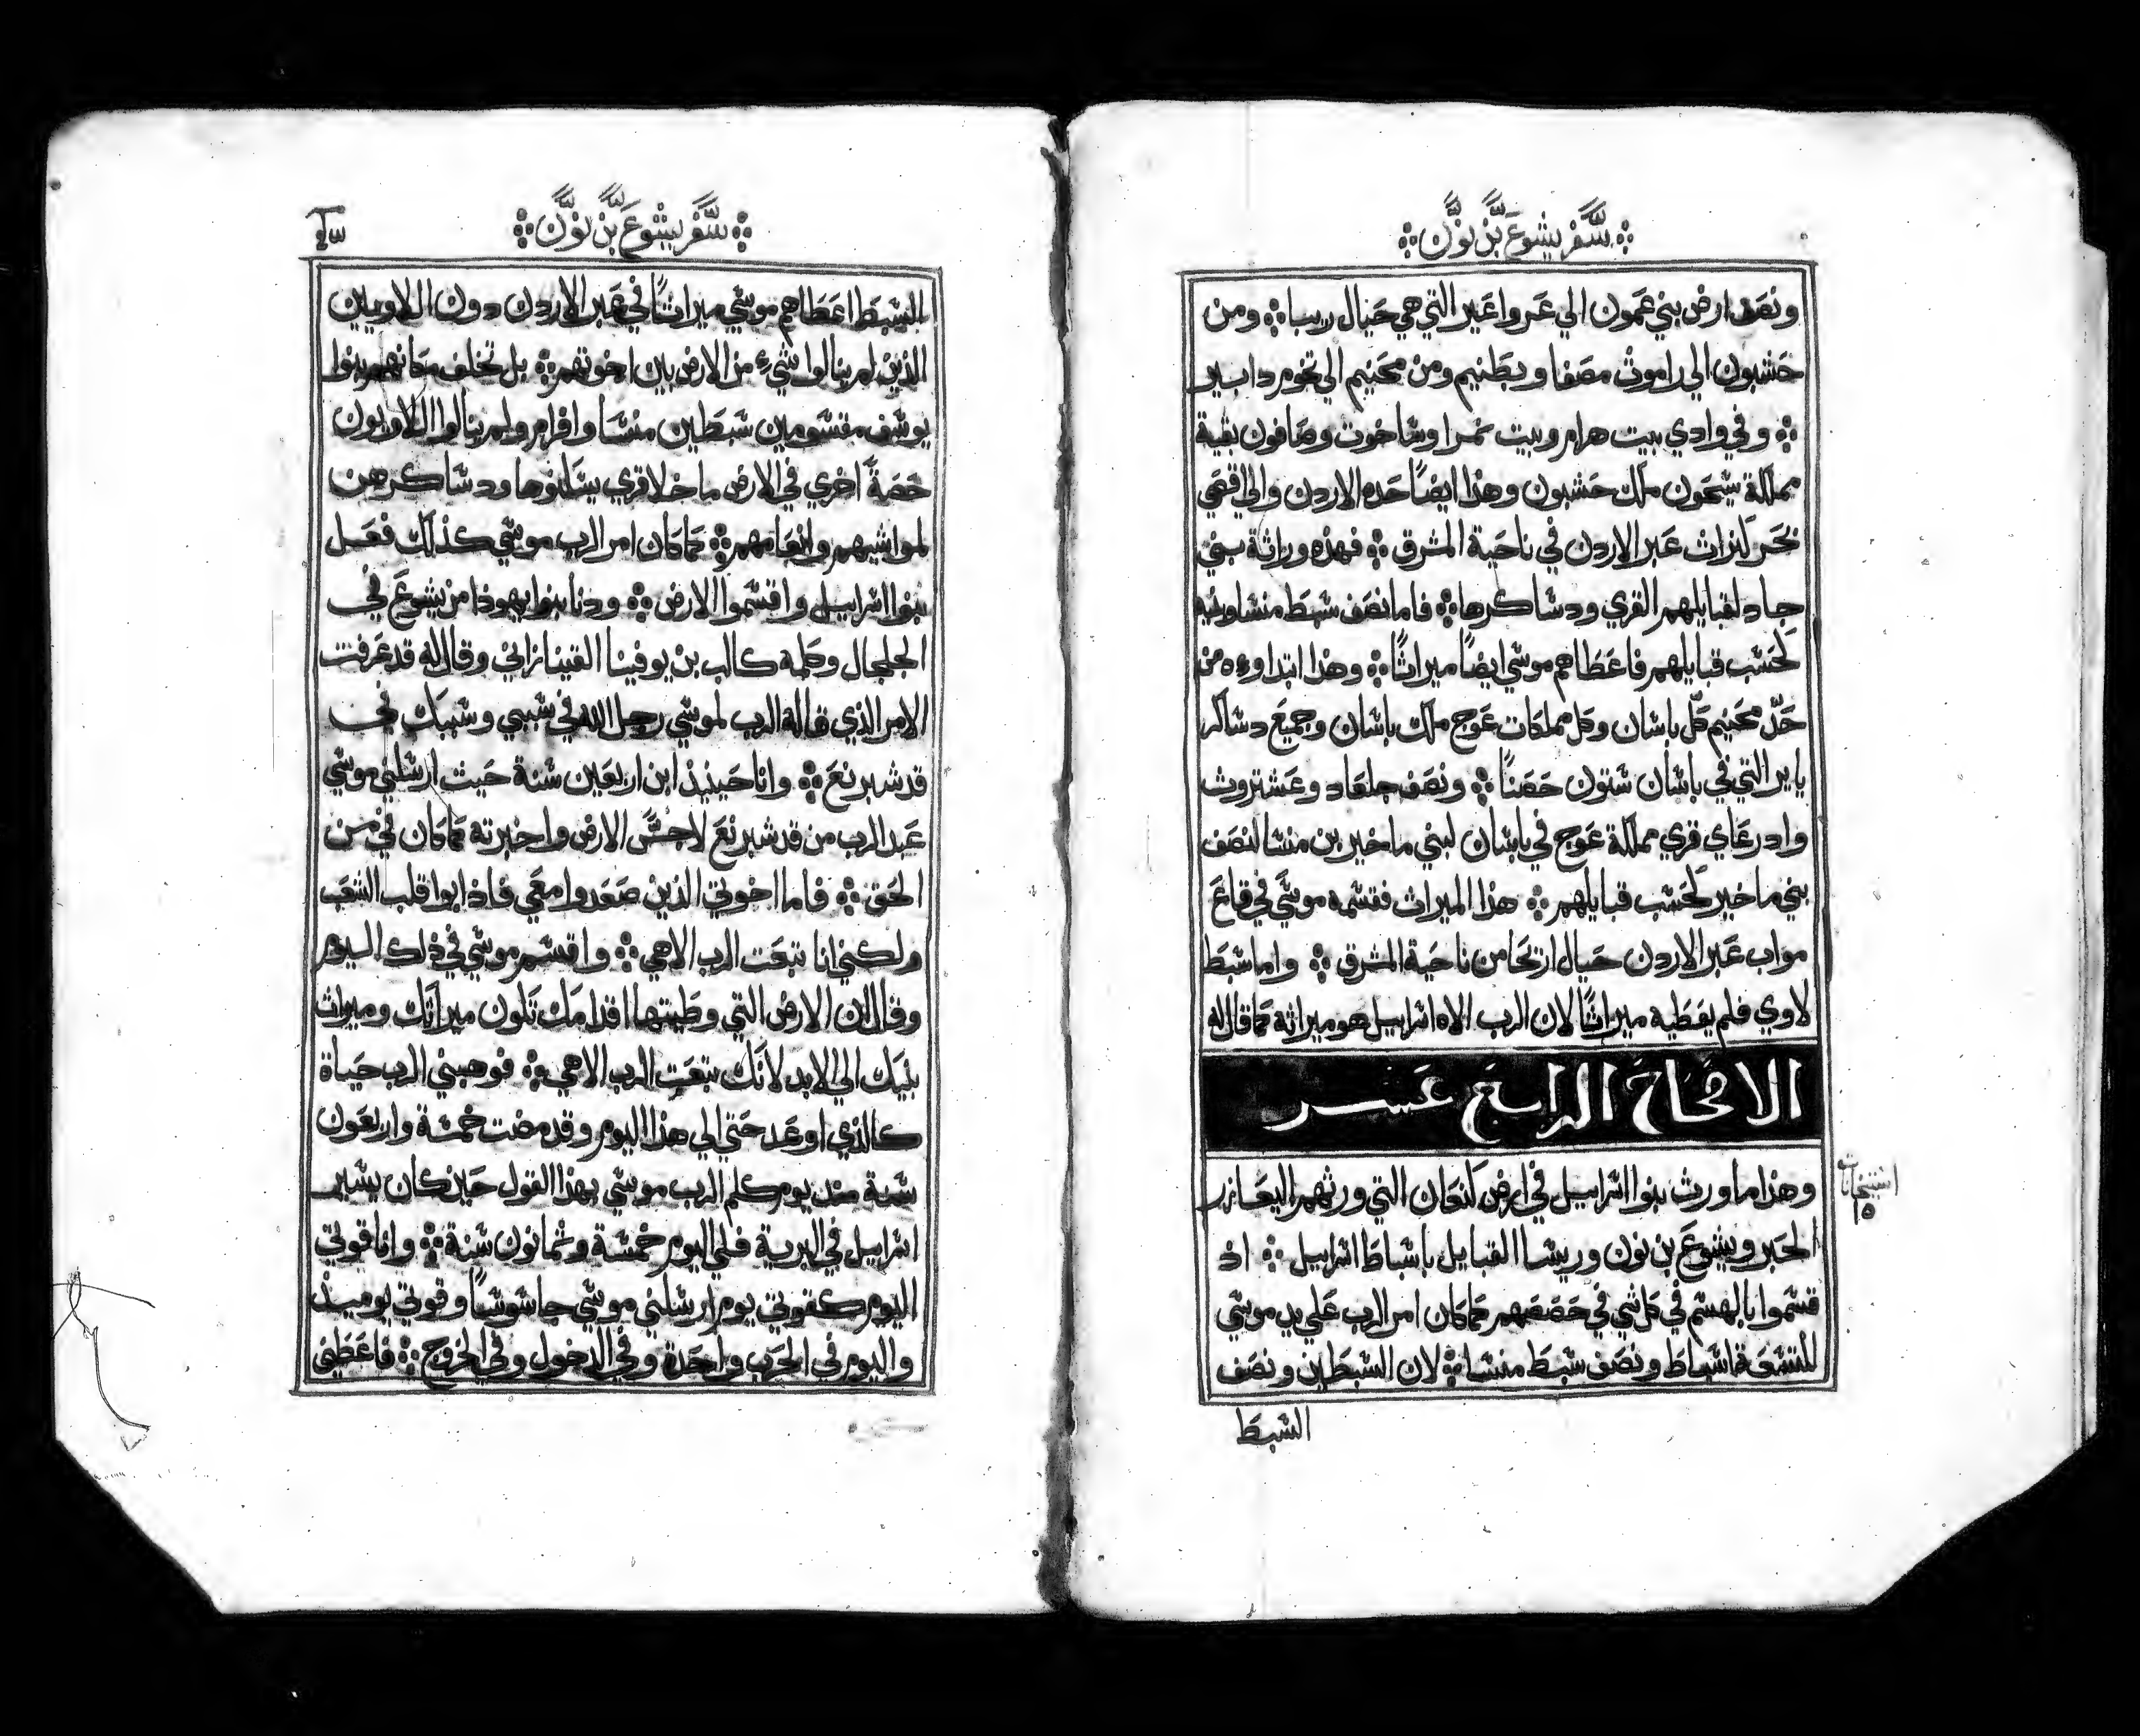 سفر يشوع بن نون
ونصف ارض بني عمون الي عرواعير التي هي حيال ربا ومن
حشبون الي راموث مصفا وبطنيم ومن محنيم الي تخوم دابير
وفي وادي بيت هرام وبيت نمرا وساخوت وصافون بقية
مملكة سيحون ملك حشبون وهذا ايضا حده الاردن والي اقصي
بحر كنراث عبر الاردن في ناحية المشرق فهذه وراثة بني
جاد لقبايلهم القري ودساكرها فاما نصف سبط منسا وبنيه
كحسب قبايلهم فاعطاهم موسي ايضا ميراثا وهذا ابتداوءه من
حد محنيم كل باسان وكل مملكات عوج ملك باسان وجميع دساكر
يايير التي في باسان ستون حصنا ونصف جلعاد وعشتروث
وادرعاي قري مملكة عوج في باسان لبني ماخير بن منسا لنصف
بني ماخير كحسب قبايلهم هذا الميراث قسمه موسي في قاع
مواب عبر الاردن حيال اريحا من ناحية المشرق واما سبط
لاوي فلم يعطيه ميراثا لان الرب الاه اسراييل هو ميراثه كما قال له
الاصحاح الرابع عشر
وهذا ما ورث بنوا اسراييل في ارض كنعان التي ورثهم اليعازر
الحبر ويشوع بن نون وريسا القبايل باسباط اسراييل اذ
قسموا بالهسم في كل شي في حصصهم كما كان امر الرب علي يد موسي
للتسعة اسباط ونصف سبط منسا لان السبطين ونصف
السبط
سفر يشوع بن نون
السبط اعطاهم موسي ميراثا في عبر الاردن دون اللاويين
الذين لم ينالوا شيء من الارض بين اخوتهم بل تخلف مكانهم بنوا
يوسف مقسومين سبطين منسا وافرام ولم ينالوا اللاويون
حصة اخري في الارض ما خلا قري يسكنوها ودساكرهن
لمواشيهم وانعامهم كما كان امر الرب موسي كذلك فعل
بنوا اسراييل واقتسموا الارض ودنا بنوا يهوذا من يشوع في
الجلجال وكلمه كالب بن يوفينا القينازاني وقال له قد عرفت
الامر الذي قاله الرب لموسي رجل الله في سببي وسببك في
قدس برنع وانا حينيذ ابن اربعين سنة حيث ارسلني موسي
عبد الرب من قدس برنع لاجس الارض واخبرته كما كان لي من
الحق فاما اخوتي الذين صعدوا معي فاذابوا قلب الشعب
ولكني انا تبعت الرب الاهي واقسم موسي في ذلك اليوم
وقال ان الارض التي وطيتها اقدامك تكون ميراثك وميراث
بنيك الي الابد لانك تبعت الرب الاهي فوهبني الرب حياة
كالذي اوعد حتي الي هذا اليوم وقد مضت خمسة واربعون
سنة منذ يوم كلم الرب موسي بهذا القول حين كان يسير
اسراييل في البرية فلي اليوم خمسة وثمانون سنة وانا قوتي
اليوم كقوتي يوم ارسلني موسي جاسوسا وقوتي يوميذ
واليوم في الحرب واحدة وفي الدخول وفي الخروج فاعطني